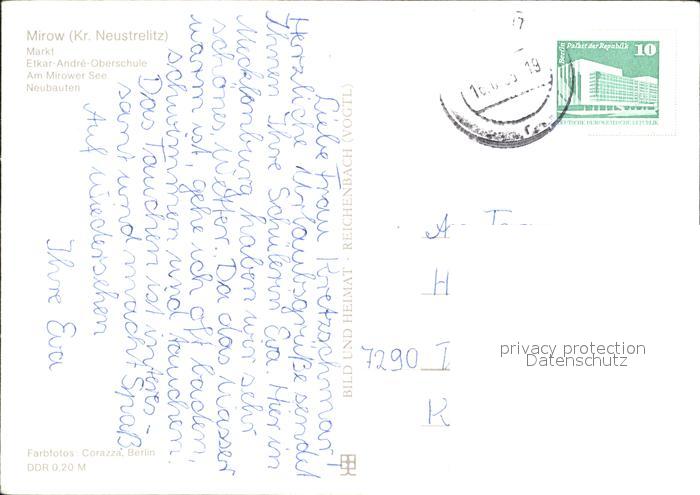 Mirow (Kr. Neustrelitz)
Markt
Etkar-André-Oberschule
Am Mirower See
Neubauten
Liebe Frau Kretzschmar,
Herzliche Urlaubsgrüße sendet
Ihnen Ihre Schülerin Eva. Hier in
Mecklenburg haben wir sehr
schönes Wetter. Da das Wasser
warm ist, gehe ich oft baden,
schwimmen und tauchen.
Das Tauchen ist interes-
sant und macht Spaß
Auf Wiedersehen
Ihre Eva
Farbfotos: Corazza, Berlin
DDR 0,20 M
BILD UND HEIMAT · REICHENBACH (VOGTL)
19
Berlin Palast der Republik
10
DEUTSCHE DEMOKRATISCHE REPUBLIK
H
7290 T
K
privacy protection
Datenschutz